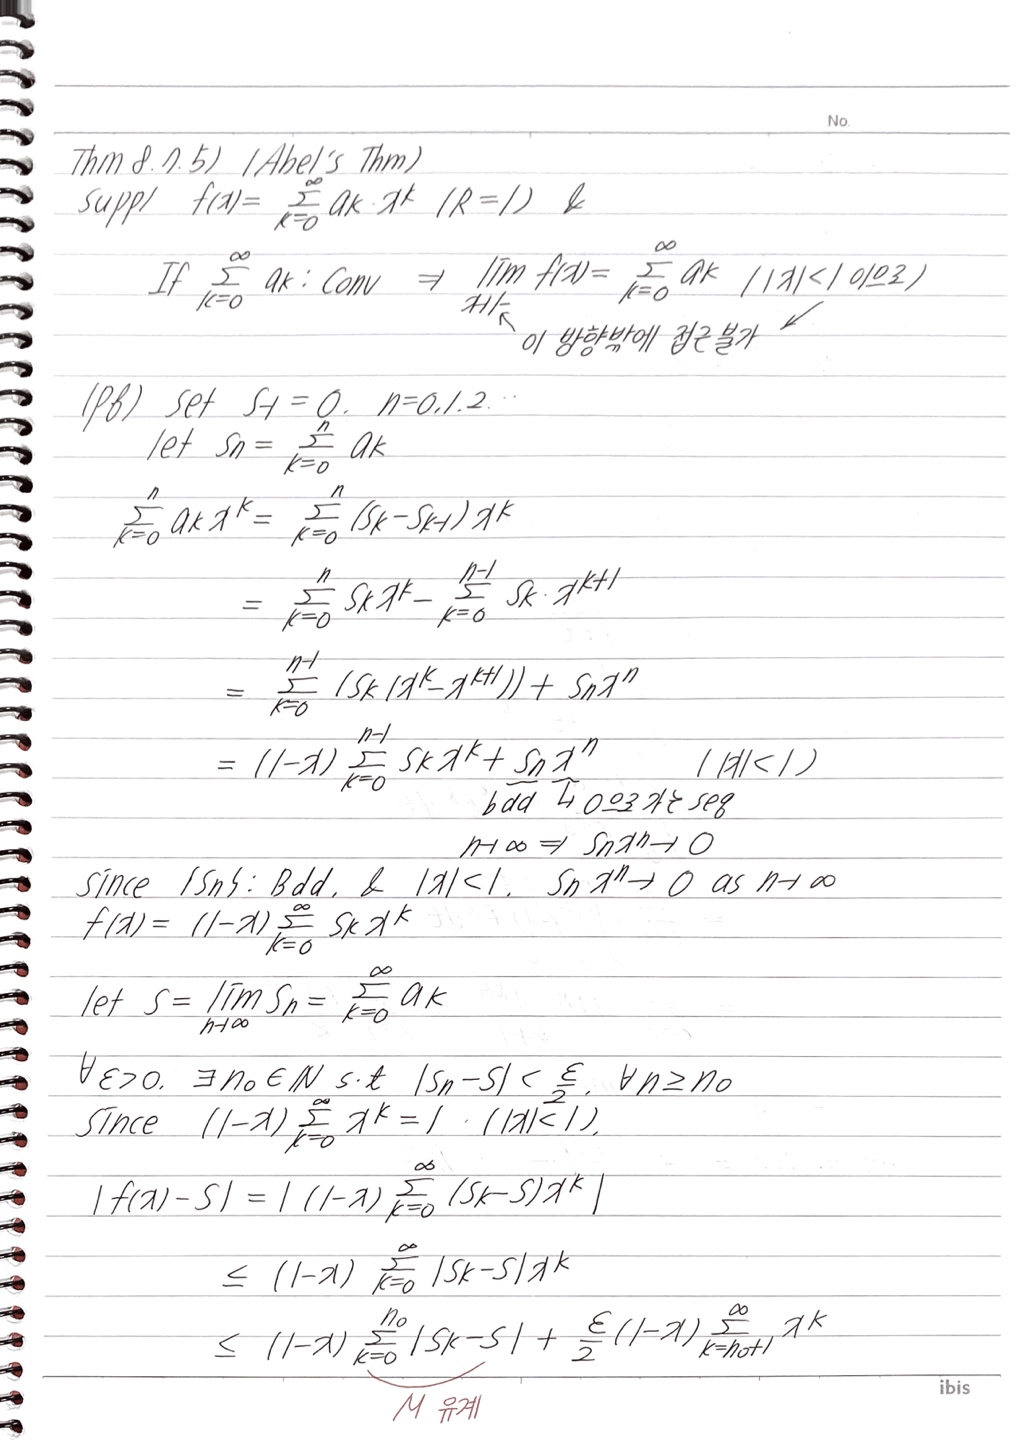 No.
Thm 8.7.5) (Abel's Thm)
Supp) f(x)= ∑_{k=0}^{∞} ak·x^k (R=1) &
If ∑_{k=0}^{∞} ak : Conv ⇒ lim_{x→1-} f(x)= ∑_{k=0}^{∞} ak (|x|<1 이므로)
이 방향밖에 접근불가
(pf) set S-1=0. n=0.1.2...
let Sn = ∑_{k=0}^{n} ak
∑_{k=0}^{n} ak x^k = ∑_{k=0}^{n} (Sk-Sk-1) x^k
= ∑_{k=0}^{n} Sk x^k - ∑_{k=0}^{n-1} Sk·x^{k+1}
= ∑_{k=0}^{n-1} (Sk(x^k-x^{k+1})) + Sn x^n
= (1-x) ∑_{k=0}^{n-1} Sk x^k + Sn x^n (|x|<1)
bdd ↳ 0으로 가는 seq
n→∞ ⇒ Sn x^n → 0
Since {Sn}: Bdd, & |x|<1. Sn x^n → 0 as n→∞
f(x) = (1-x) ∑_{k=0}^{∞} Sk x^k
let S = lim_{n→∞} Sn = ∑_{k=0}^{∞} ak
∀ε>0. ∃n0∈N s.t |Sn-S| < ε/2. ∀n≥n0
Since (1-x) ∑_{k=0}^{∞} x^k = 1 · (|x|<1),
|f(x)-S| = |(1-x) ∑_{k=0}^{∞} (Sk-S)x^k|
≤ (1-x) ∑_{k=0}^{∞} |Sk-S|x^k
≤ (1-x) ∑_{k=0}^{n0} |Sk-S| + ε/2 (1-x) ∑_{k=n0+1}^{∞} x^k
M 유계
ibis